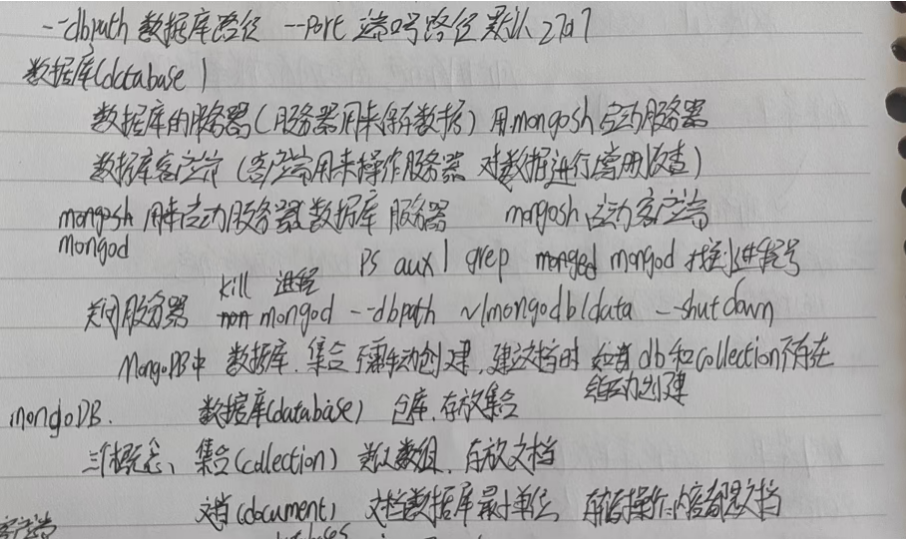 --dbpath 数据库路径 --port 端口号路径 默认 27017
数据库(database)
数据库的服务器(服务器用来保存数据) 用mongosh启动服务器
数据库客户端(客户端用来操作服务器 对数据进行增删改查)
mongosh 用来启动服务器 数据库 服务器 mongosh 启动客户端
mongod
ps aux | grep monged mongod 找到进程号
kill 进程
关闭服务器 mongod --dbpath ~/mongodb/data --shutdown
MongoDB中 数据库.集合 不需手动创建,建文档时 如首 db和collection不存在
会自动创建
mongoDB. 数据库(database) 仓库.存放集合
三个概念、集合(collection) 类似数组.存放文档
文档(document) 文档数据库最小单位 所有操作内容都是文档
客户端